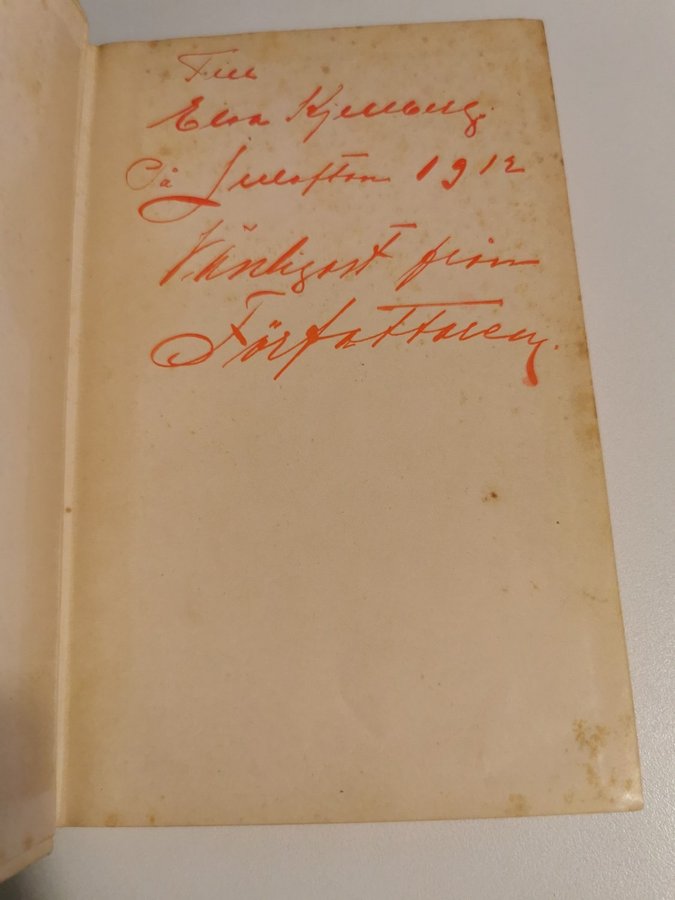 Till
Elsa Kjellberg.
På Julafton 1912
Vänligast från
Författaren.